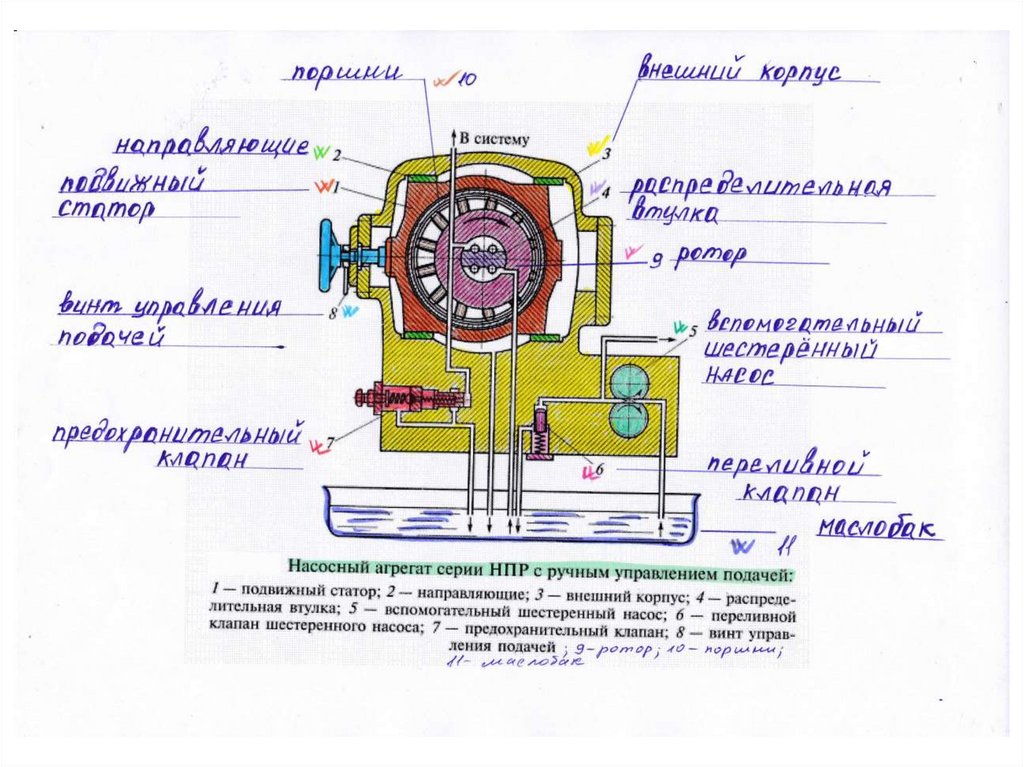 поршни 10
внешний корпус
В систему
направляющие 2
3
подвижный 1
статор
4 распределительная
втулка
9 ротор
винт управления 8
подачей
5 вспомогательный
шестерённый
насос
предохранительный 7
клапан
6 переливной
клапан
маслобак
11
Насосный агрегат серии НПР с ручным управлением подачей:
1 — подвижный статор; 2 — направляющие; 3 — внешний корпус; 4 — распреде-
лительная втулка; 5 — вспомогательный шестеренный насос; 6 — переливной
клапан шестеренного насоса; 7 — предохранительный клапан; 8 — винт управ-
ления подачей ; 9-ротор; 10 - поршни;
11- маслобак